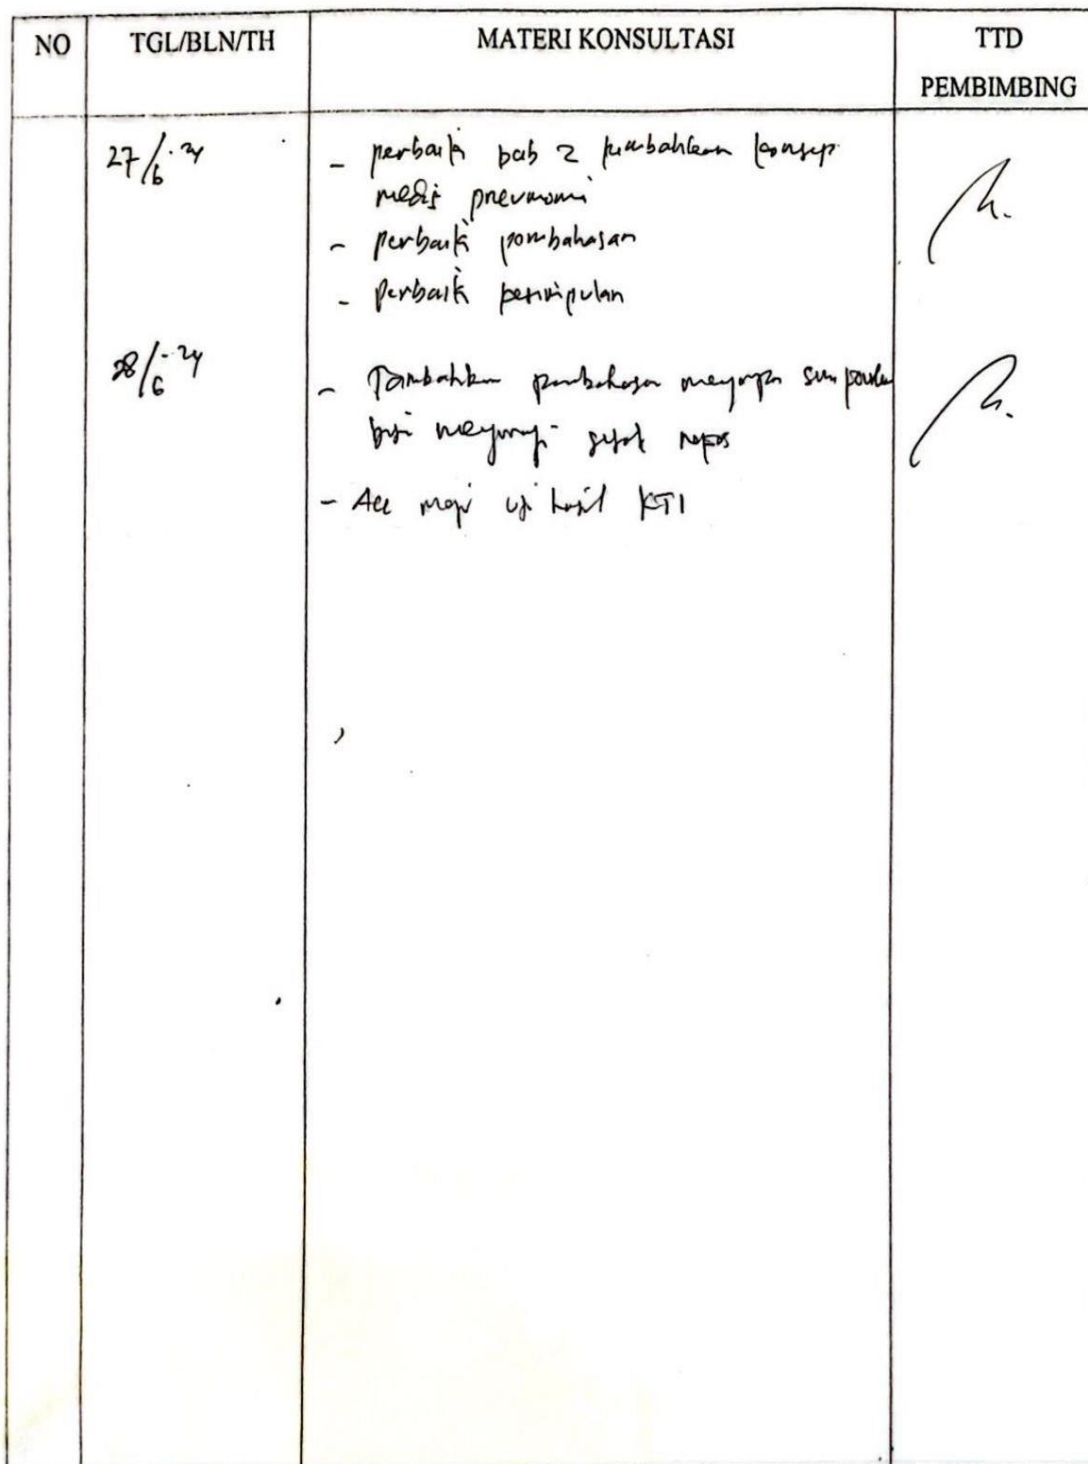 NO TGL/BLN/TH MATERI KONSULTASI TTD
PEMBIMBING
27/6-24 - perbaiki bab 2 tambahkan konsep
medis pneumoni
- perbaiki pembahasan
- perbaiki kesimpulan
28/6-24 - Tambahkan pembahasan mengapa
bisa sesak napas
- Acc uji hasil KTI